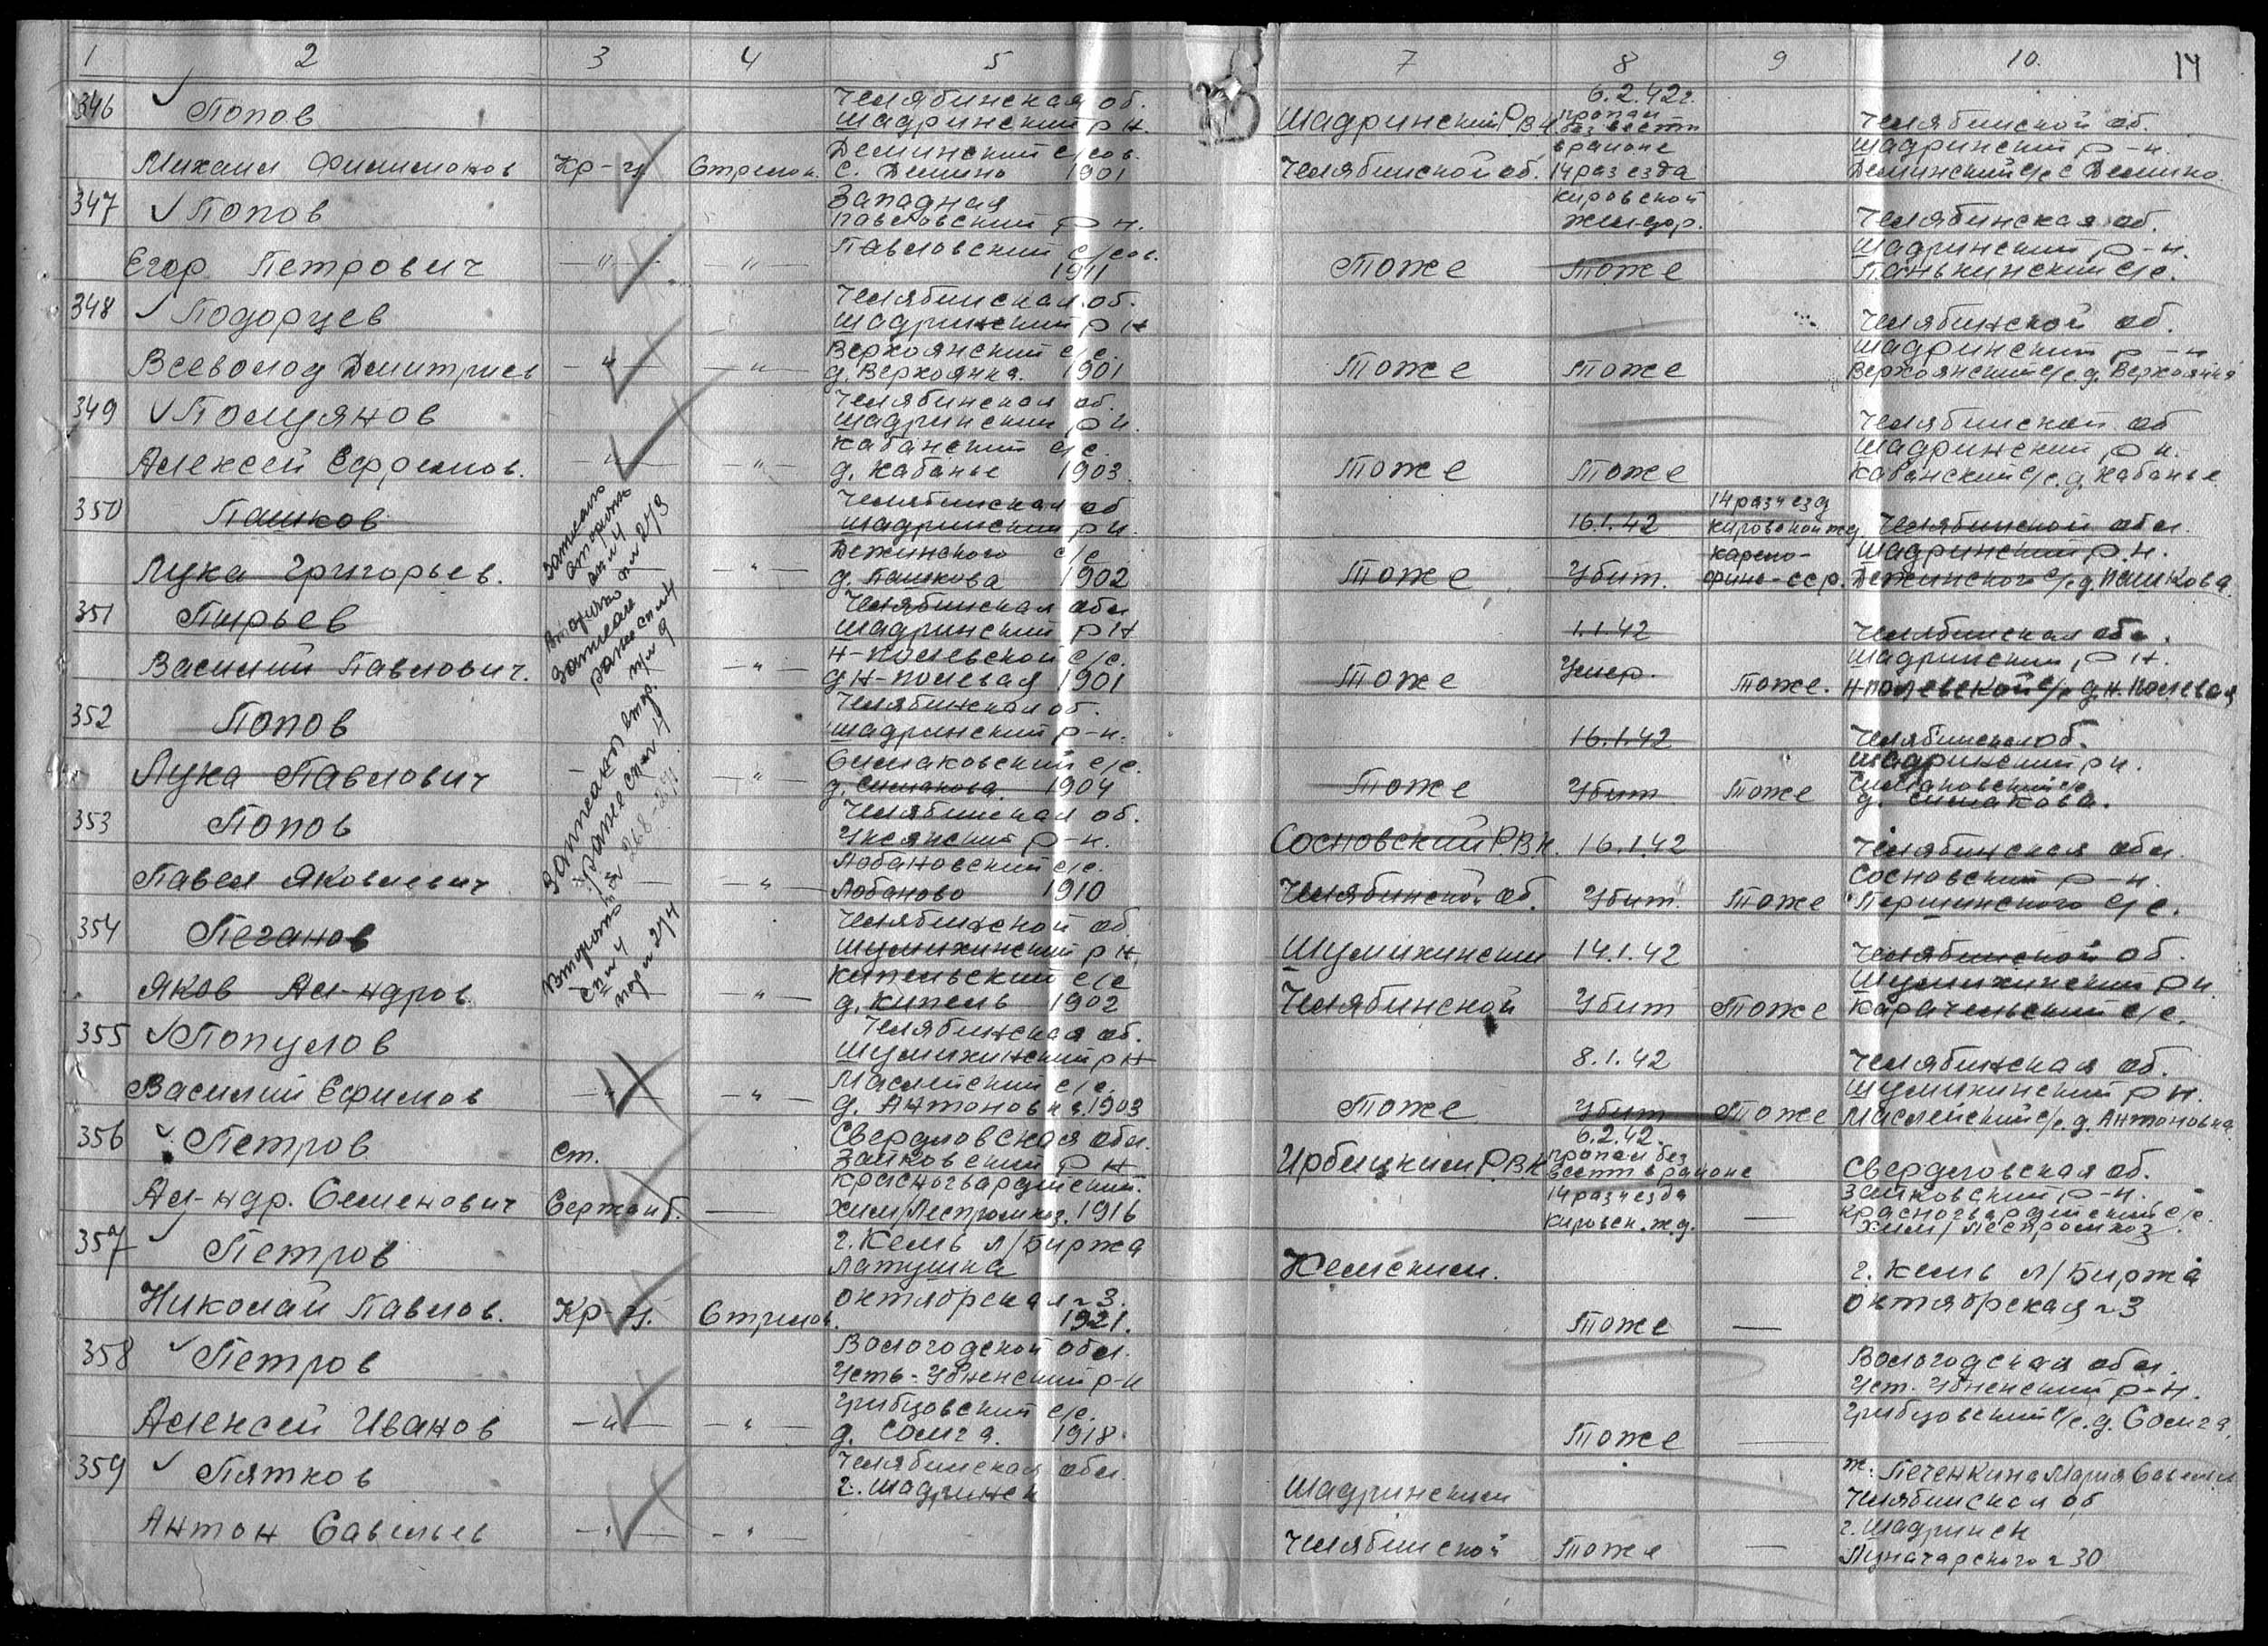 1 2 3 4 5 7 8 9 10. 14
346 Попов
Михаил Филимонов Кр-ц Стрелок.
Челябинская об.
Шадринский р Н.
Деминский с/сов.
с. Демино 1901
Шадринский Р.В.К.
Челябинской об.
6.2.42г.
пропал
без вести
в районе
14 раз езда
Кировской
жел-дор.
Челябинской об.
Шадринский р-н.
Деминский с/с с Демино
347 Попов
Егор Петрович — " — — " —
Западная
Павловский р Н.
Павловский с/сов.
1911
тоже тоже
Челябинская об.
Шадринский р-н.
Панькинский с/с.
348 Подорцев
Всеволод Дмитриев — " — — " —
Челябинская об.
Шадринский р Н
Верхоянский с/с
д. Верхоянка. 1901
тоже тоже
Челябинской об.
Шадринский р-н
Верхоянский с/с д. Верхоянка
349 Полуянов
Алексей Ефремов. — " — — " —
Челябинская об.
Шадринский р Н.
Кабанский с/с.
д. Кабанье 1903
тоже тоже
Челябинской об
Шадринский р н.
Кабанский с/с. д. Кабанье
350 Пашков
Лука Григорьев. — " —
Челябинская об
Шадринский р н.
д. Пашкова 1902
тоже
16.1.42
Убит.
14 разъезд
Кировской жд
Карело-
фино-сср.
Челябинской обл.
Шадринский р.н.
с/с д. Пашкова
351 Пырьев
Василий Павлович.
Вторично
записан
ранее сп н4
п/н 9
— " —
Челябинская обл
Шадринский р Н
Н-Полевской с/с.
д Н-Полевая 1901
тоже
1.1.42
Умер.
тоже.
Челябинская обл.
Шадринский р Н.
Нполевской с/с д. Н. Полевая
352 Попов
Лука Павлович — " —
Челябинская об.
Шадринский р-н.
Симаковский с/с.
д. Симакова. 1904
тоже
16.1.42
Убит
тоже
Шадринский р н.
Симаковский с/с
д. Симакова.
353 Попов
Павел Яковлевич — " —
268-271
Челябинская об.
Уксянский р-н.
Лобановский с/с.
Лобаново 1910
Сосновский Р.В.К.
Челябинской об.
16.1.42
Убит.
тоже
Челябинская обл.
Сосновский р-н.
Першинского с/с.
354 Печанов
Яков Ал-ндров.
Вторично
сп н 4
пор н 274
— " —
Челябинской об
Шумихинский р Н.
Кипельский с/с
д. Кипель 1902
Шумихинский
Челябинской
14.1.42
Убит
тоже
Челябинской об.
Шумихинский р н
Карачельский с/с.
355 Популов
Василий Ефимов — " — — " —
Челябинская об.
Шумихинский р Н
Маслейский с/с.
д. Антоновка. 1903
тоже
8.1.42
Убит
тоже
Челябинская об.
Шумихинский р Н.
Маслейский с/с. д. Антоновка
356 Петров
Ал-ндр. Семенович
Ст.
Сержант. —
Свердловская обл.
Зайковский р Н
Красногвардейский.
Хим/Леспромхоз. 1916
Ирбицким Р.В.К.
6.2.42.
пропал без
вести в районе
14 разъезда
Кировск. ж.д. —
Свердловская об.
Зайковский р-н.
Красногвардейский с/с.
Хим/Леспромхоз.
357 Петров
Николай Павлов. Кр-ц. Стрелок.
г. Кемь л/Биржа
Латушка
Октябрская 23.
1921.
Кемским.
тоже —
г. Кемь л/Биржа
Октябрская 23
358 Петров
Алексей Иванов — " — — " —
Вологодской обл.
Усть-Убженский р-н
Грибцовский с/с.
д. Солига. 1918.
тоже —
Вологодская обл.
Уст. Убженский р-н.
Грибцовский с/с. д. Солига.
359 Пятков
Антон Савельев — " — — " —
Челябинская обл.
г. Шадринск
Шадринским
Челябинской
тоже —
ж. Печенкина Мария Савельев
Челябинская об
г. Шадринск
Луначарского 230